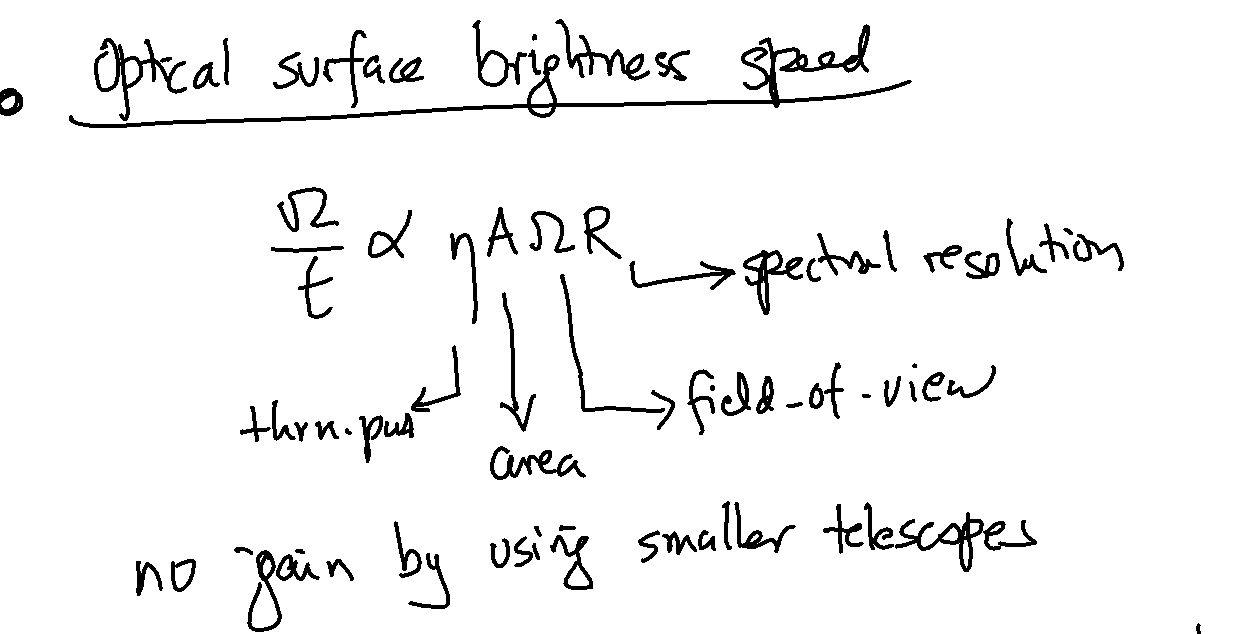 • Optical surface brightness speed
Ω/t ∝ ηAΩR
spectral resolution
field-of-view
area
no gain by using smaller telescopes